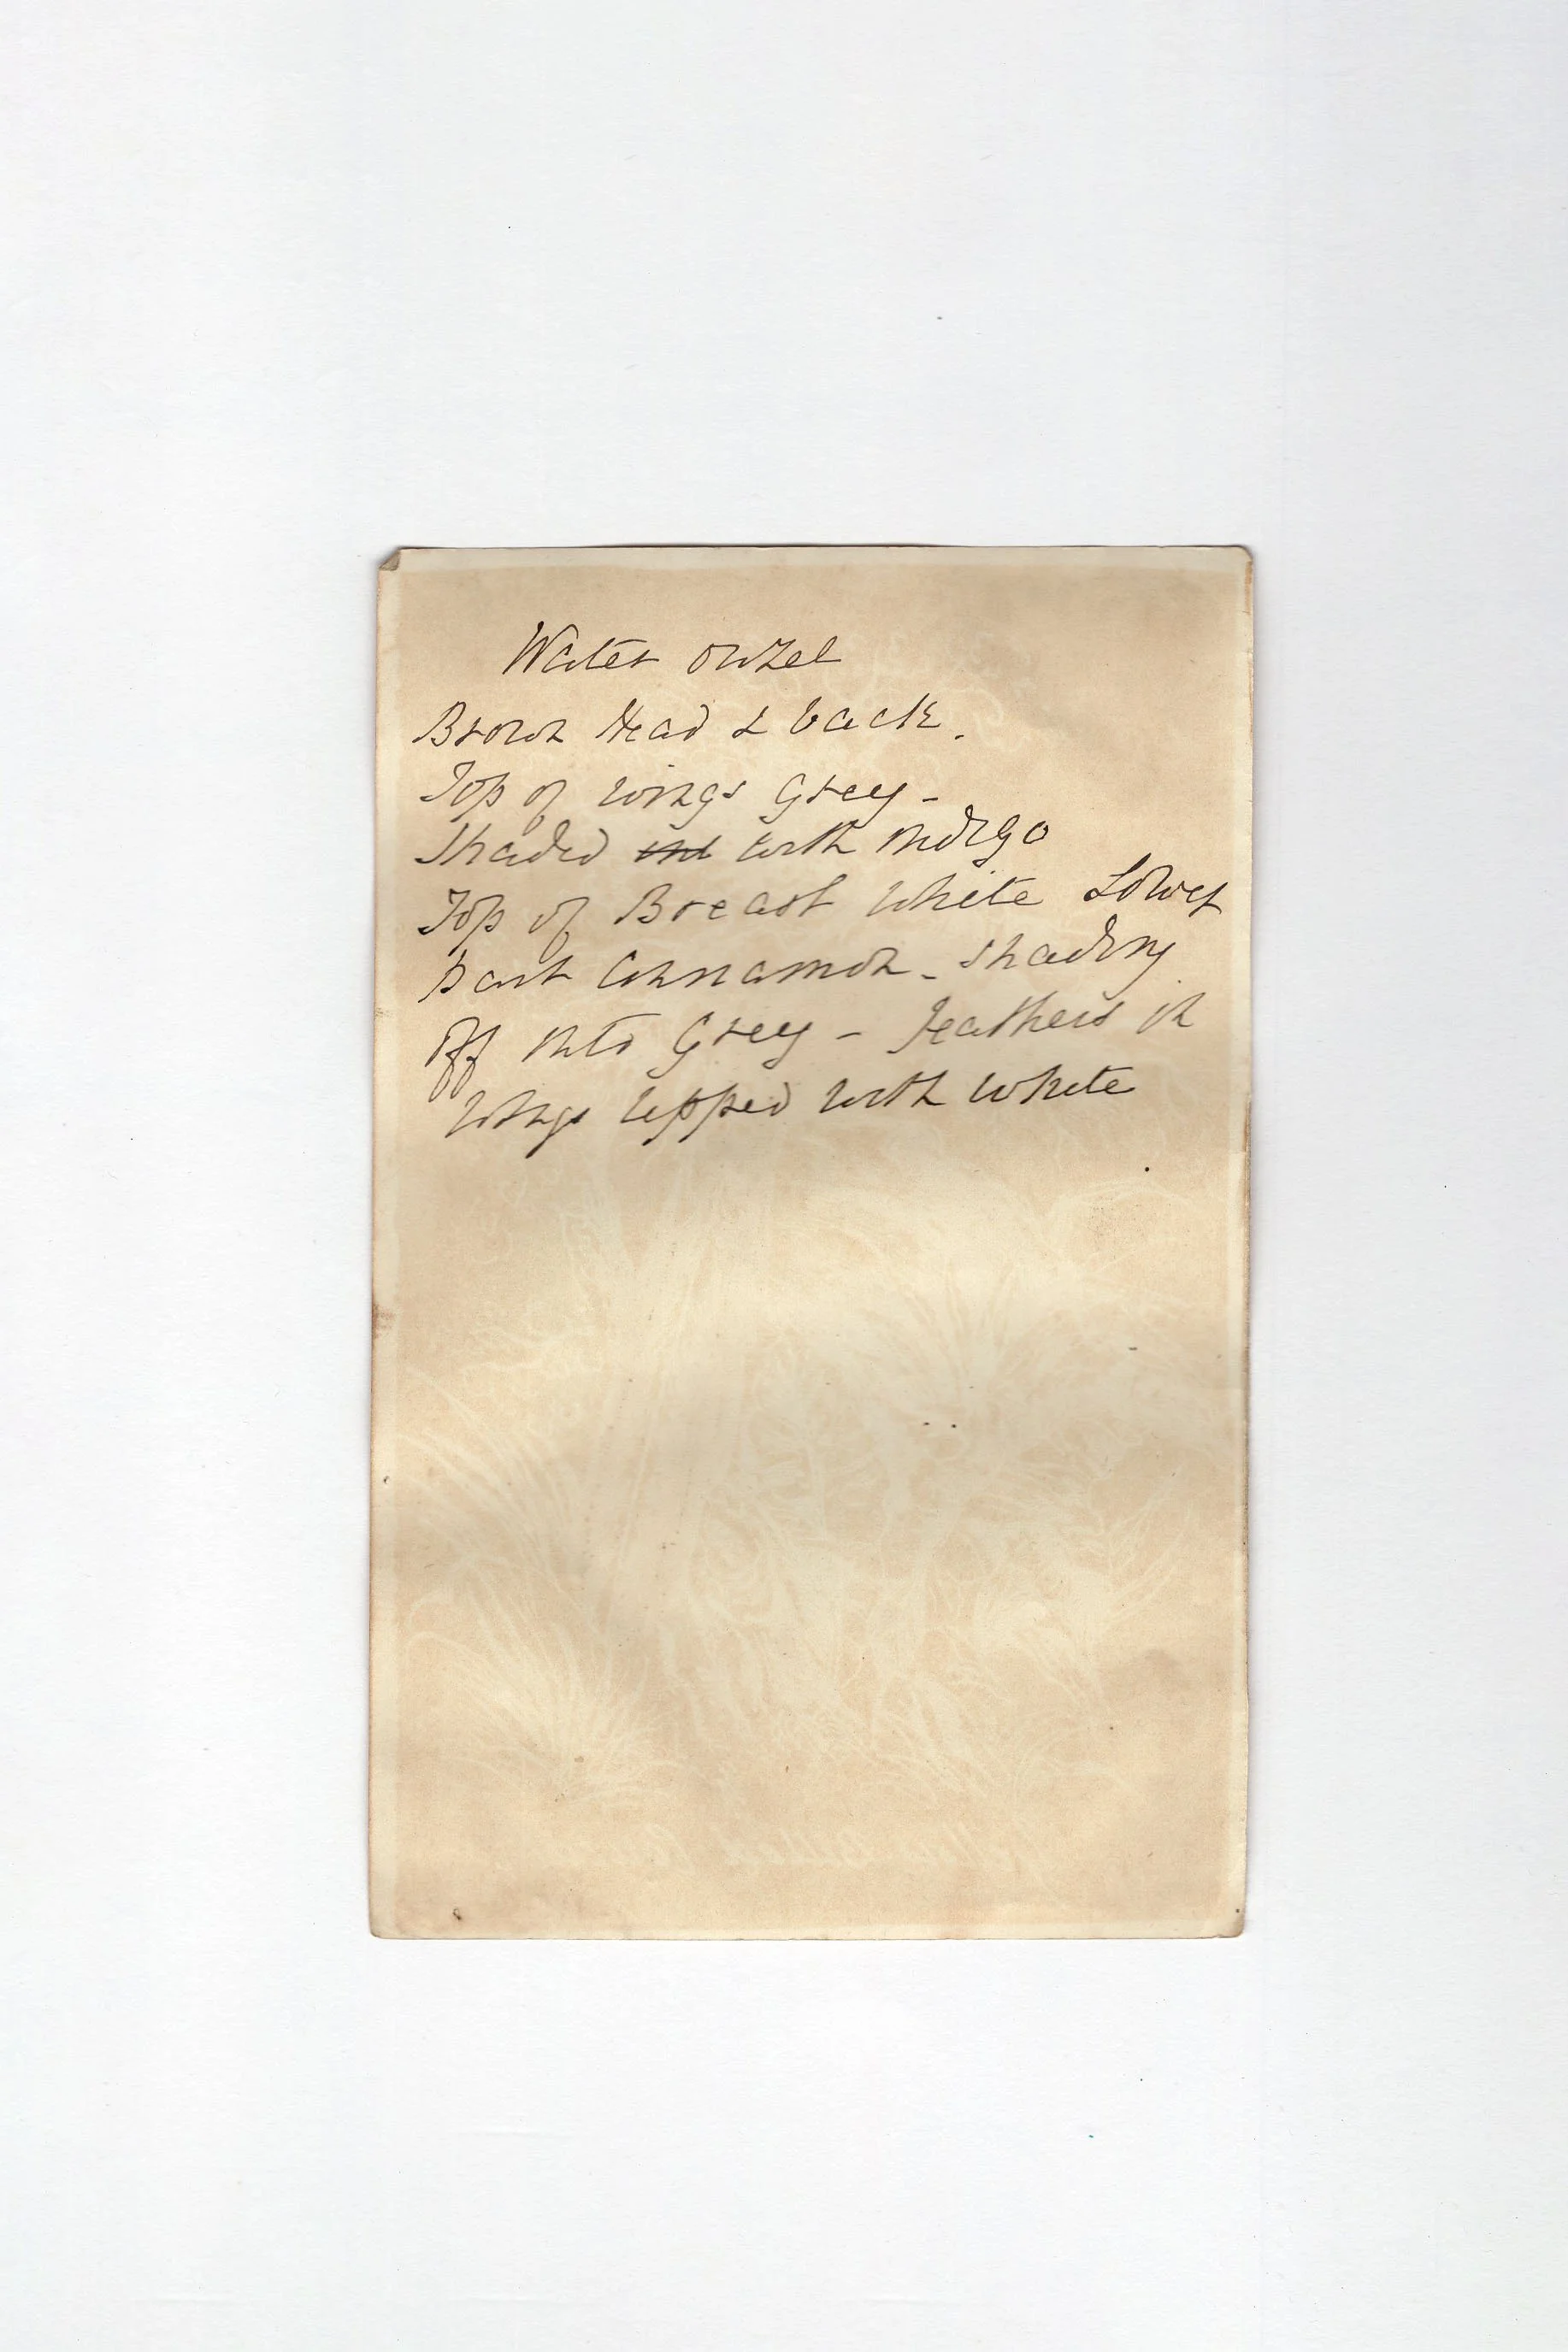 Water ouzel
Brown Head & back.
Top of wings Grey -
Shaded with indigo
Top of Breast White Lower
part Cinnamon - shading
off into Grey - feathers in
wings tipped with white